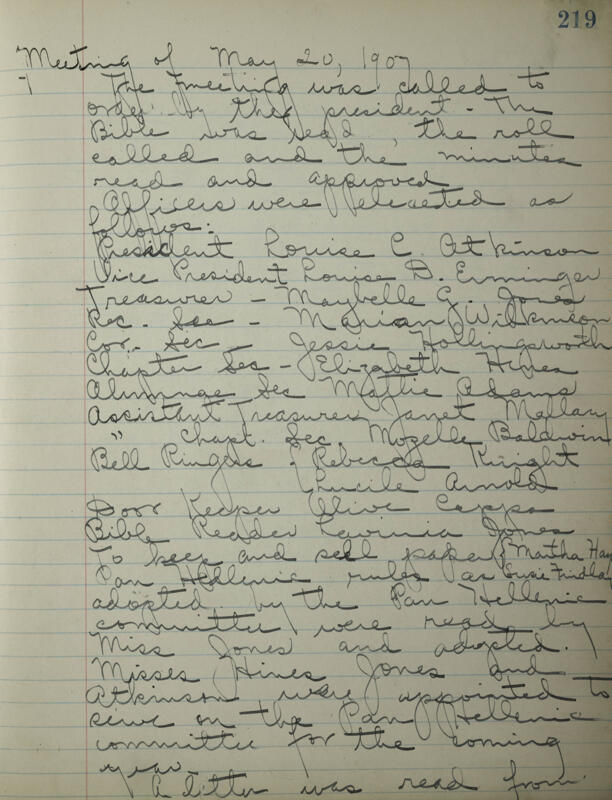 219
Meeting of May 20, 1907
The meeting was called to
order by the president - The
Bible was read, the roll
called and the minutes
read and approved
Officers were elected as
follows:
President Louise C. Atkinson
Vice President Louise D. Erminger
Treasurer - Maybelle G. Jones
Rec. Sec - Marian Wilkinson
Cor. Sec - Jessie Hollingsworth
Chapter Sec - Elizabeth Hines
Alumnae Sec Mattie Adams
Assistant Treasurer Janet Mallary
" Chapt. Sec. Mozelle Baldwin
Bell Ringers { Rebecca Knight
Lucile Arnold
Door Keeper Olive Capps
Bible Reader Lavinia Jones
To keep and sell paper { Martha Hay
Pan Hellenic rules as Susie Findlay
adopted by the Pan Hellenic
committee were read by
Miss Jones and adopted.
Misses Hines Jones and
Atkinson were appointed to
serve on the Pan Hellenic
committee for the coming
year.
A letter was read from